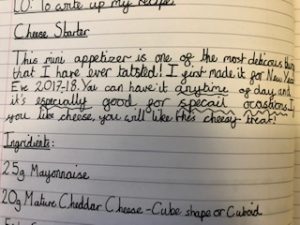 LO: To write up my recipe.
Cheese Starter
This mini appetizer is one of the most delicous
that I have ever tatsted! I just made it for New Years
Eve 2017-18. You can have it anytime of day and
it's especially good for specail ocasions. If
you like cheese, you will like this cheesy treat!
Ingridients:
25g Mayonnaise
20g Mature Cheddar Cheese - Cube shape or Cuboid